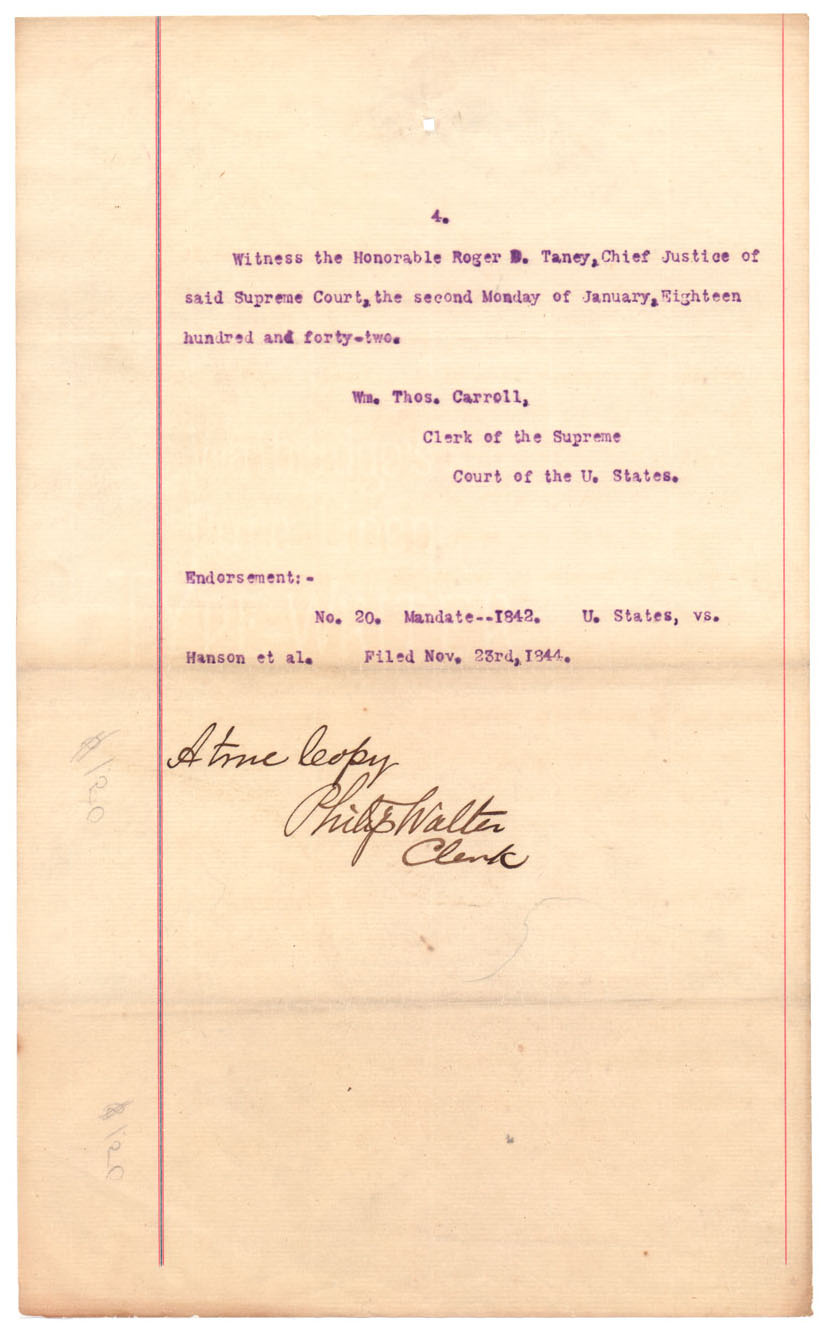 4.
Witness the Honorable Roger B. Taney, Chief Justice of
said Supreme Court, the second Monday of January, Eighteen
hundred and forty-two.
Wm. Thos. Carroll,
Clerk of the Supreme
Court of the U. States.
Endorsement:-
No. 20. Mandate--1842. U. States, vs.
Hanson et al. Filed Nov. 23rd, 1844.
A true Copy
Philip Walter
Clerk
$1.20
$1.20